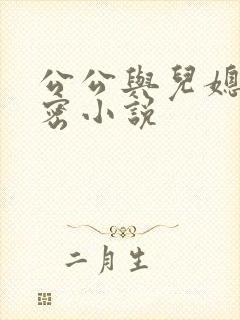 公公與兒媳
密小說
二月生